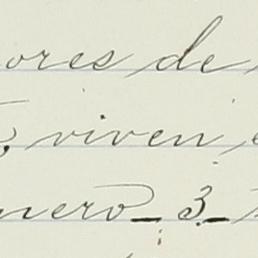 ores de
, viven
nero 3